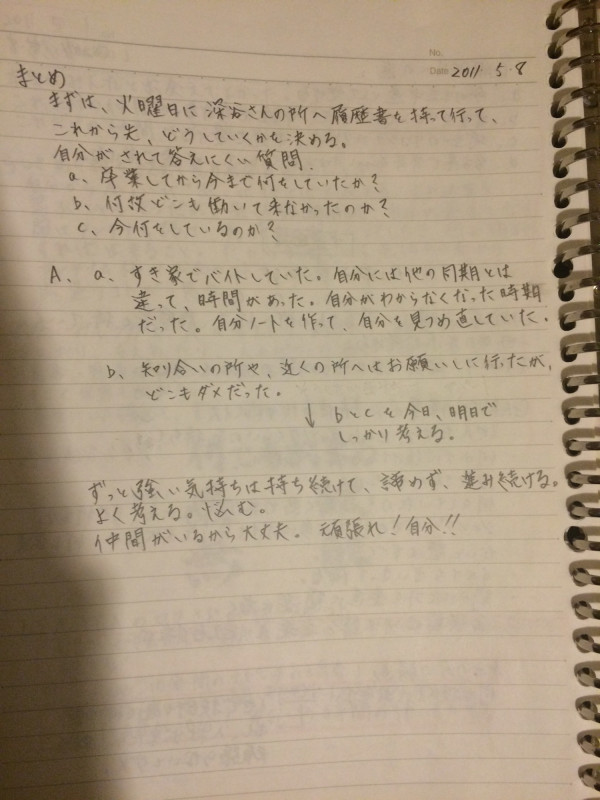 No.
Date 2011 5・8
まとめ
まずは、火曜日に深谷さんの所へ履歴書を持って行って、
これから先、どうしていくかを決める。
自分がされて答えにくい質問.
a、卒業してから今まで何をしていたか?
b、何故どこも働いて来なかったのか?
c、今何をしているのか?
A、a、すき家でバイトしていた。自分には他の同期とは
違って、時間があった。自分がわからなくなった時期
だった。自分ノートを作って、自分を見つめ直していた.
b、知り合いの所や、近くの所へはお願いしに行ったが、
どこもダメだった。
↓ bとcを今日、明日で
しっかり考える。
ずっと強い気持ちは持ち続けて、諦めず、進み続ける。
よく考える。悩む。
仲間がいるから大丈夫。頑張れ!自分!!